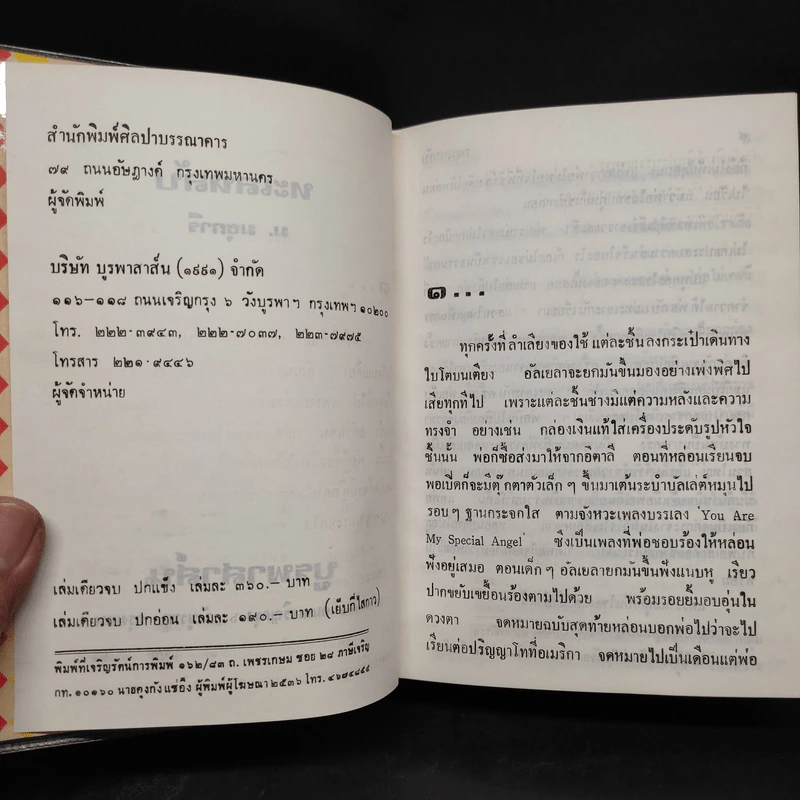 สำนักพิมพ์ศิลปาบรรณาคาร
๗๙ ถนนอัษฎางค์ กรุงเทพมหานคร
ผู้จัดพิมพ์
บริษัท บูรพาสาส์น (๑๙๙๑) จำกัด
๑๑๖-๑๑๘ ถนนเจริญกรุง ๖ วังบูรพาฯ กรุงเทพฯ ๑๐๒๐๐
โทร. ๒๒๒-๓๙๔๓, ๒๒๒-๗๐๓๗, ๒๒๓-๗๙๗๕
โทรสาร ๒๒๑-๙๔๔๖
ผู้จัดจำหน่าย
เล่มเดียวจบ ปกแข็ง เล่มละ ๓๖๐.- บาท
เล่มเดียวจบ ปกอ่อน เล่มละ ๑๙๐.- บาท (เย็บกี่ไสกาว)
พิมพ์ที่เจริญรัตน์การพิมพ์ ๑๖๒/๘๓ ถ. เพชรเกษม ซอย ๒๘ ภาษีเจริญ
กท. ๑๐๑๖๐ นายคุงกัง แซ่อึ้ง ผู้พิมพ์ผู้โฆษณา ๒๕๓๖ โทร. ๔๖๗๔๘๕๕
๑...
ทุกครั้งที่ลำเลียงของใช้ แต่ละชิ้นลงกระเป๋าเดินทาง
ใบโตบนเตียง อัลเยลาจะยกมันขึ้นมองอย่างเพ่งพิศไป
เสียทุกทีไป เพราะแต่ละชิ้นช่างมีแต่ความหลังและความ
ทรงจำ อย่างเช่น กล่องเงินแท้ใส่เครื่องประดับรูปหัวใจ
ชิ้นนั้น พ่อก็ซื้อส่งมาให้จากอิตาลี ตอนที่หล่อนเรียนจบ
พอเปิดก็จะมีตุ๊กตาตัวเล็กๆ ขึ้นมาเต้นระบำบัลเล่ต์หมุนไป
รอบๆ ฐานกระจกใส ตามจังหวะเพลงบรรเลง 'You Are
My Special Angel' ซึ่งเป็นเพลงที่พ่อชอบร้องให้หล่อน
ฟังอยู่เสมอ ตอนเด็กๆ อัลเยลายกมันขึ้นฟังแนบหู เรียว
ปากขยับเขยื้อนร้องตามไปด้วย พร้อมรอยยิ้มอบอุ่นใน
ดวงตา จดหมายฉบับสุดท้ายหล่อนบอกพ่อไปว่าจะไป
เรียนต่อปริญญาโทที่อเมริกา จดหมายไปเป็นเดือนแต่พ่อ